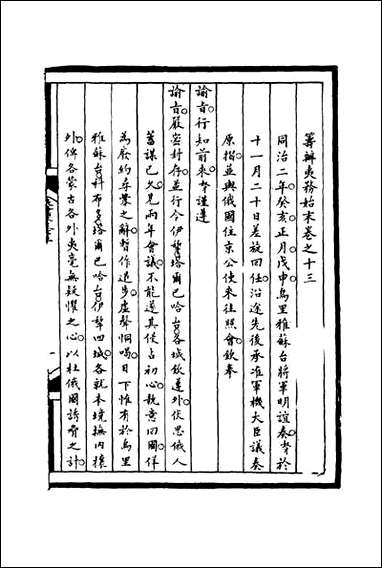 籌辦夷務始末卷之十三
同治二年癸亥正月戊申烏里雅蘇台將軍明誼奏奴才於
十一月二十日差旋回任沿途先後承准軍機大臣議奏
原摺並與俄國住京公使來往照會欽奉
諭旨行知前來奴才謹遵
諭旨嚴密封存並行令伊犂塔爾巴哈台各城欽遵外伏思俄人
蓄謀已久兄兩年會議不能遂其侵占初心執意回國佯
為廢約尋釁之辭暫作退步虛聲恫喝目下惟有於烏里
雅蘇台科布多塔爾巴哈台伊犂四城各就本境撫內攘
外俾各蒙古各外夷毫無疑懼之心以杜俄國誘脅之計